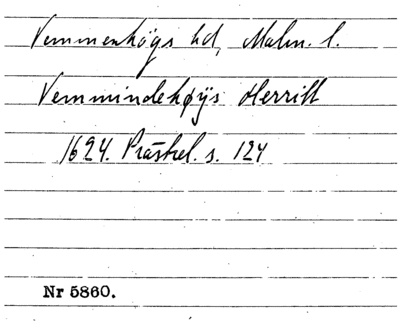 Vemmenhögs hd, Malm. l.
Vemmindehøÿs Herritt
1624. Prästrel. s. 124
Nr 5860.